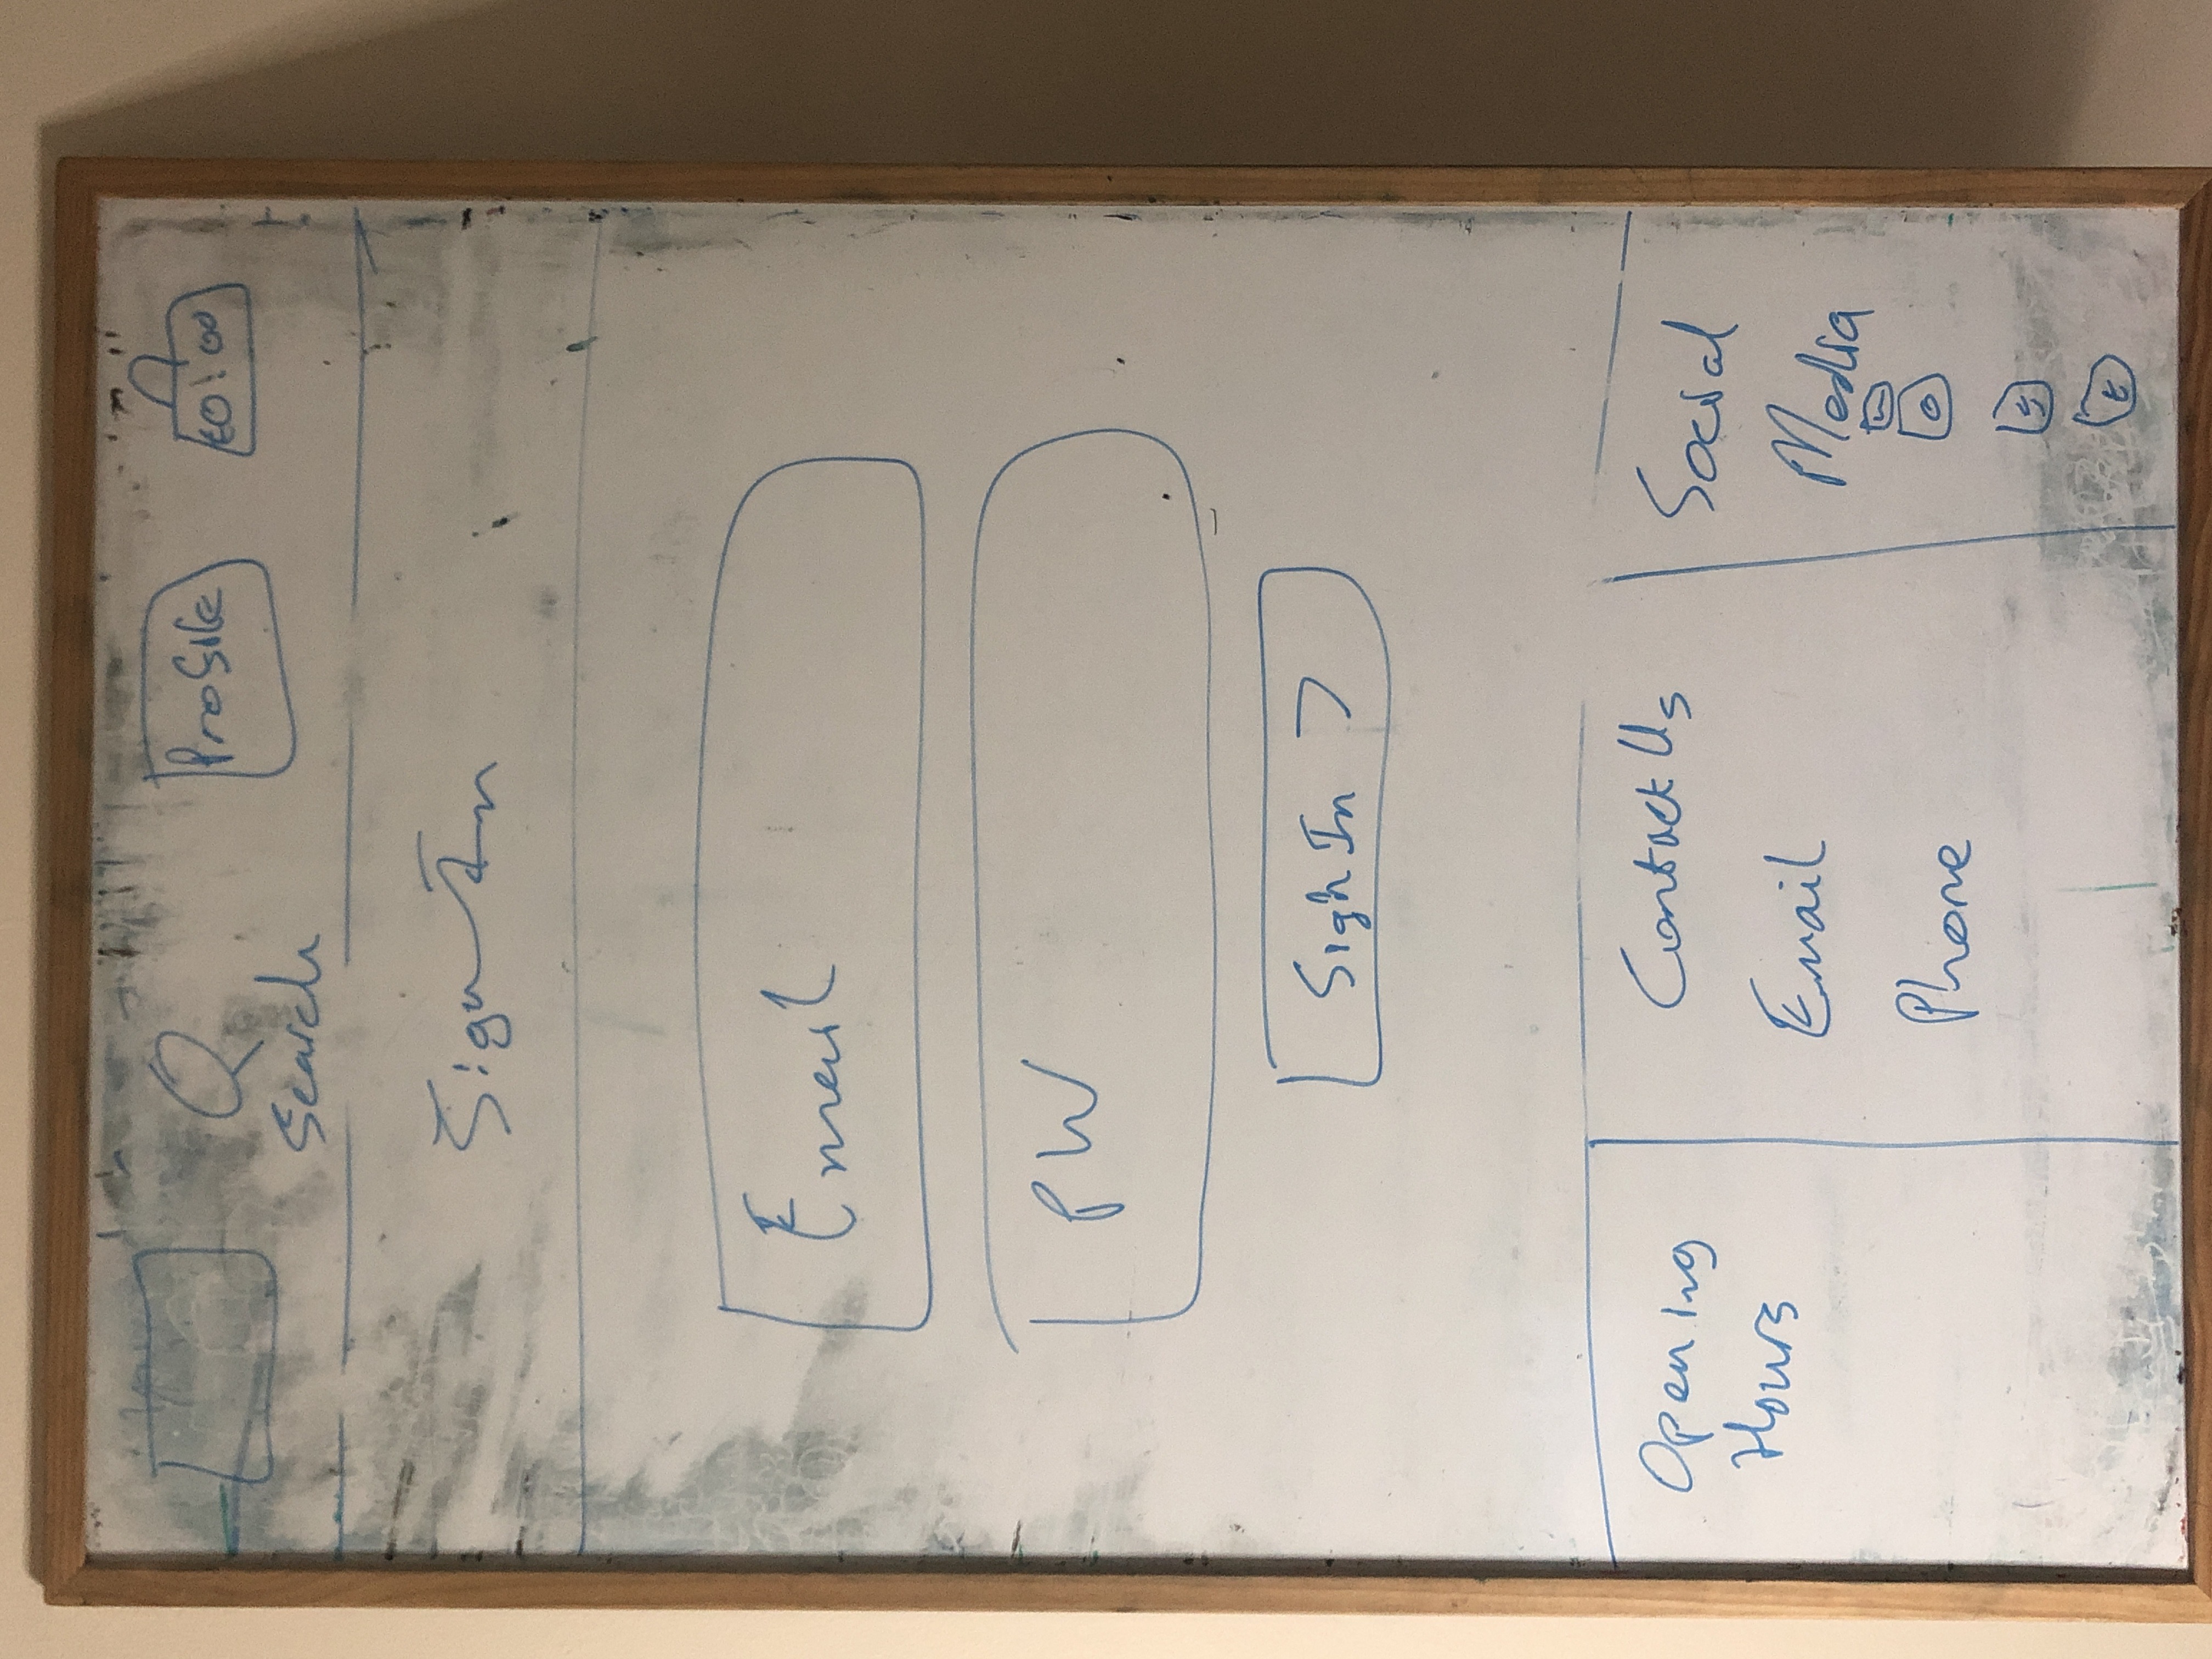 Profile
£0:00
Search
Sign In
Email
PW
Sign In >
Opening
Hours
Contact Us
Email
Phone
Social
Media